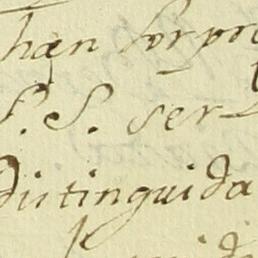 han sorpre
S. S. ser
distinguida